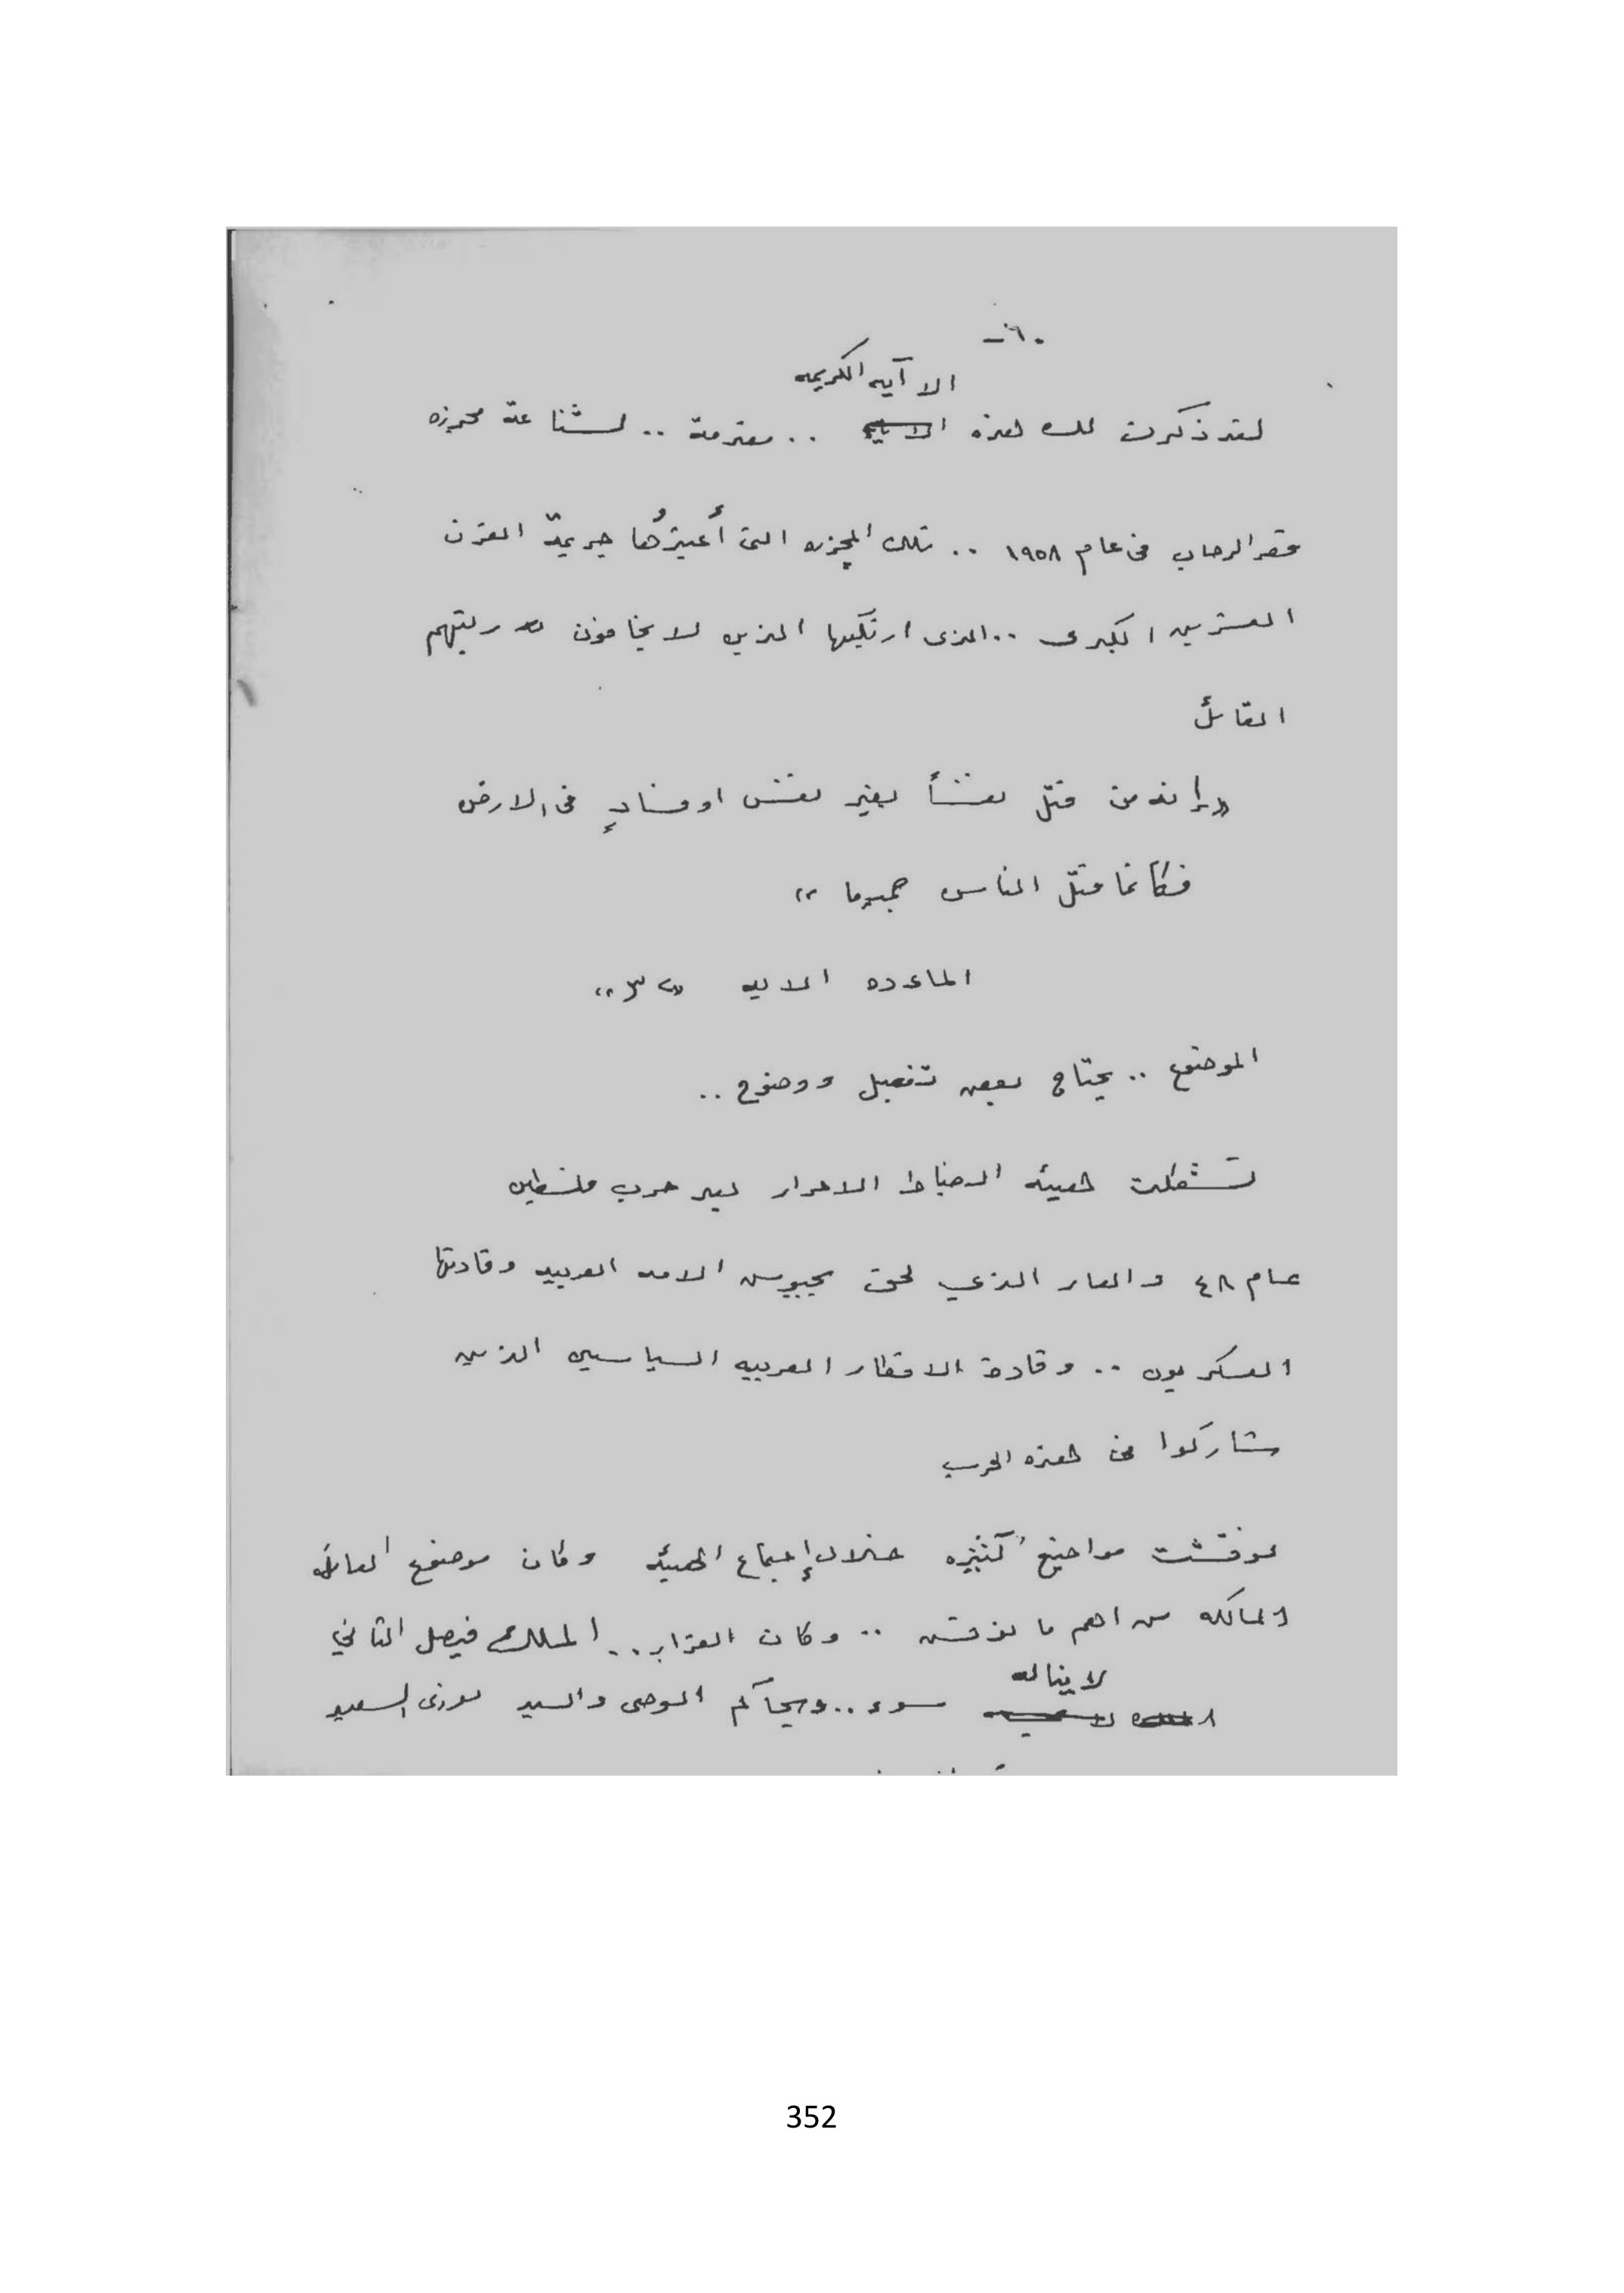 -٦-
الاآيه الكريمه
لقد ذكرت لك هذه .. مقدمة .. لشناعة مجزره
قصر الرحاب في عام ١٩٥٨ .. تلك المجزره التي أعتبرُها جريمة القرن
العشرين الكبرى .. الذى ارتكبها الذين لا يخافون ربهم
القائل
« إنه من قتل نفساً بغير نفس او فسادٍ في الارض
فكأنما قتل الناس جميعا »
المائده الايه «٣٢»
الموضوع .. يحتاج بعض تفصيل ووضوح ..
تشكلت هيئه الضباط الاحرار بعد حرب فلسطين
عام ٤٨ والعار الذي لحق بجيوش الامه العربيه وقادتها
العسكريون .. وقادة الاقطار العربيه السياسين الذين
شاركوا في هذه الحرب
نوقشت مواضيع كثيره خلال إجتماع الهيئه وكان موضوع العائله
المالكه من اهم ما نوقش .. وكان القرار .. الملك فيصل الثاني
لا يناله
سوء .. ويحاكم الوصى والسيد نورى السعيد
352